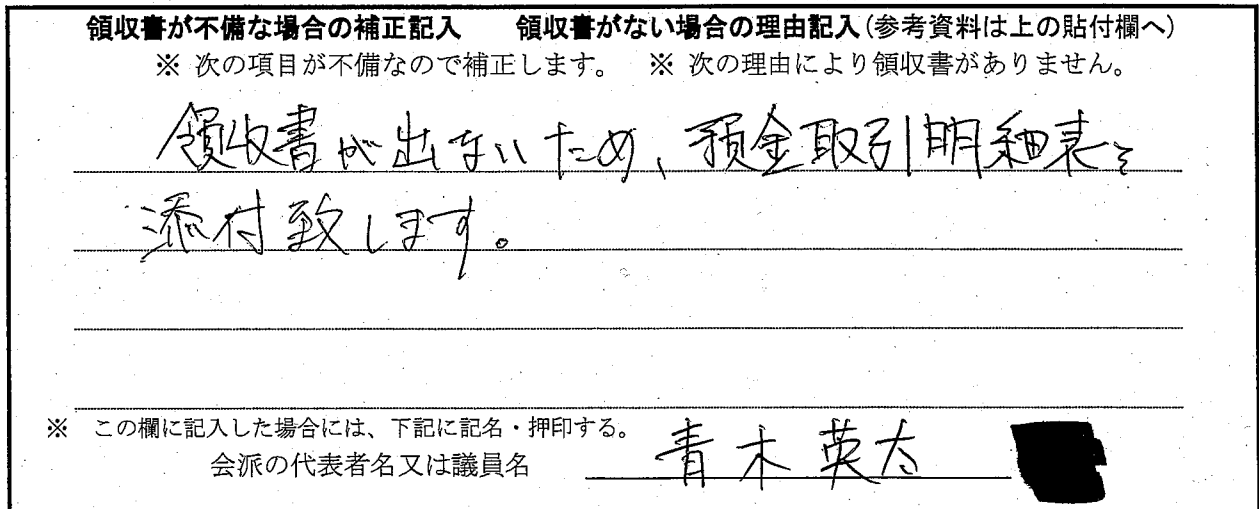 領収書が不備な場合の補正記入　領収書がない場合の理由記入(参考資料は上の貼付欄へ)
※ 次の項目が不備なので補正します。　※ 次の理由により領収書がありません。
領収書が出ないため、預金取引明細表を
添付致します。
※　この欄に記入した場合には、下記に記名・押印する。
会派の代表者名又は議員名　青木英太